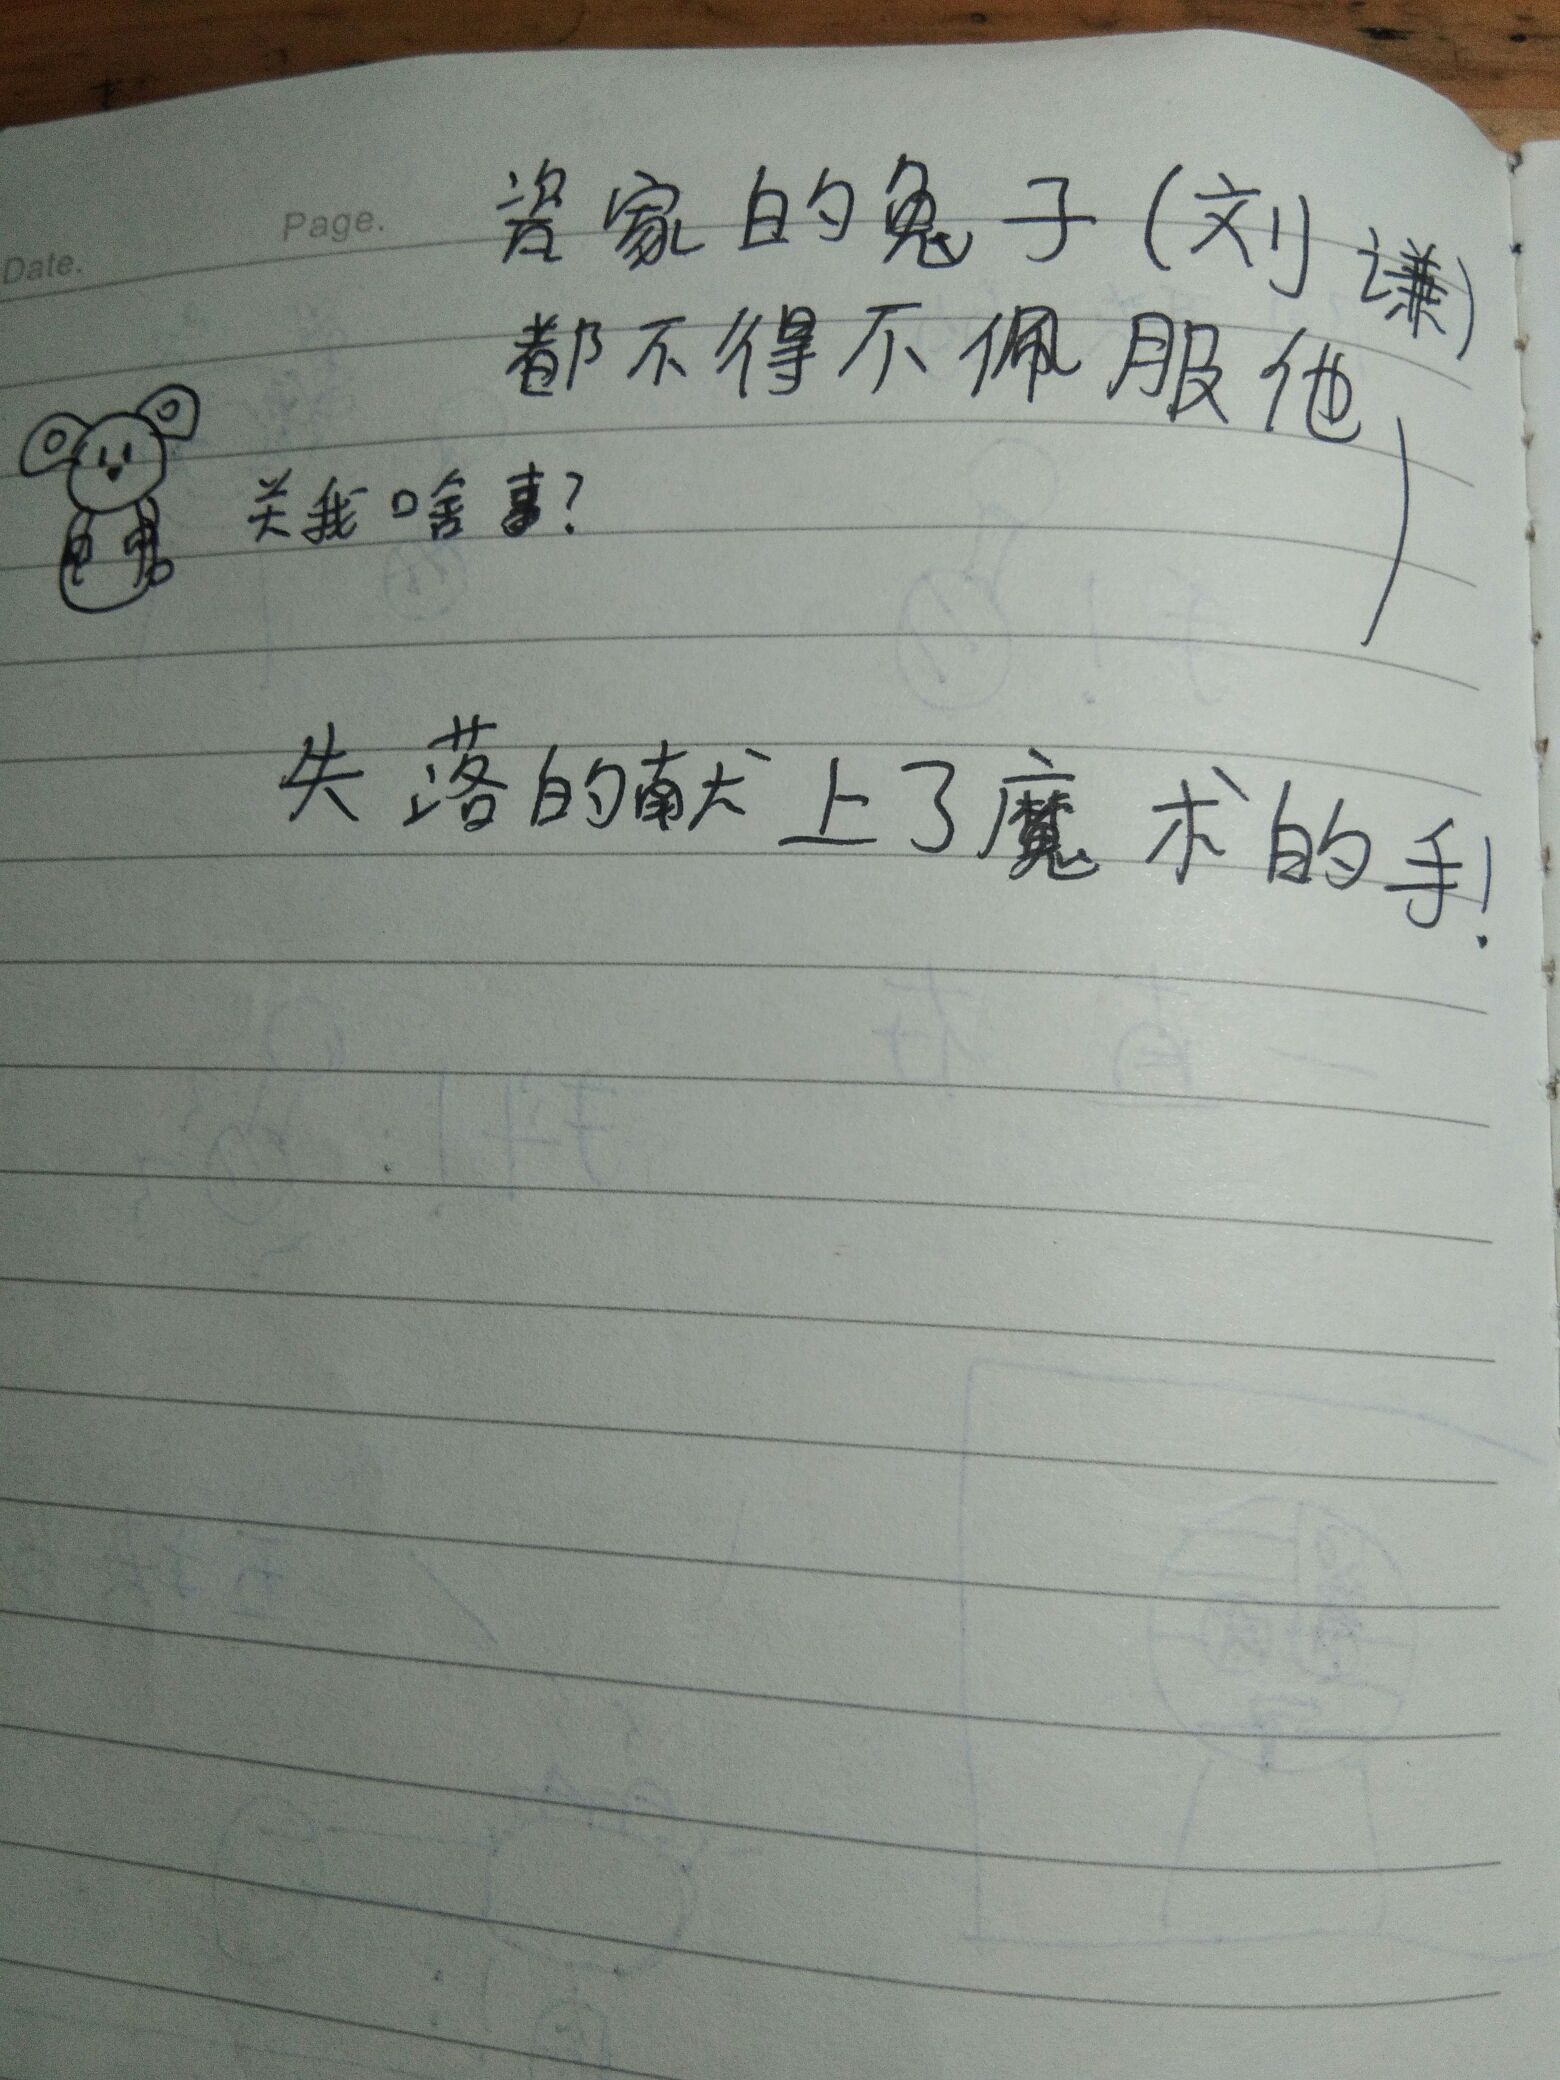 Page.
Date.
瓷家的兔子(刘谦)
都不得不佩服他
关我啥事?
失落的献上了魔术的手!